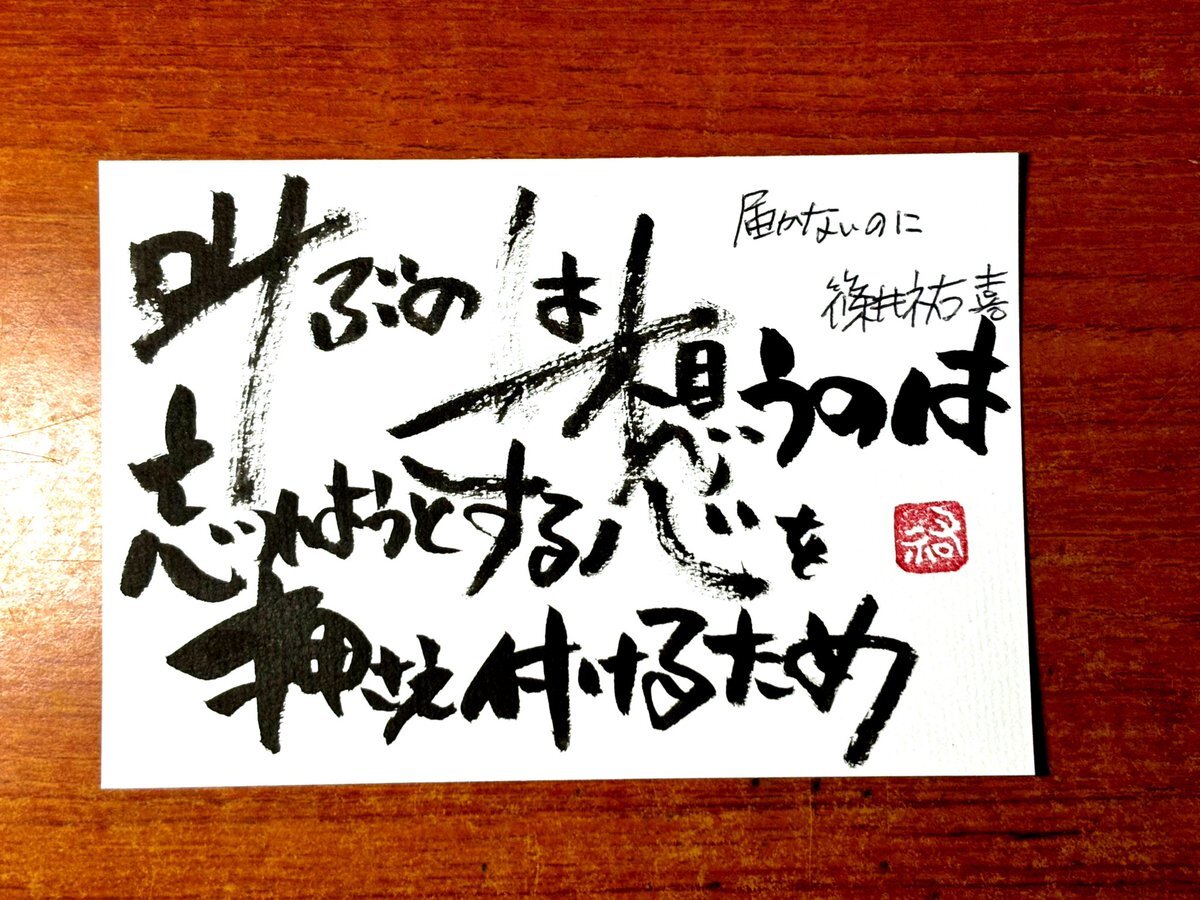 届かないのに
篠井祐喜
叫ぶのは想うのは
忘れようとする心を
押さえ付けるため